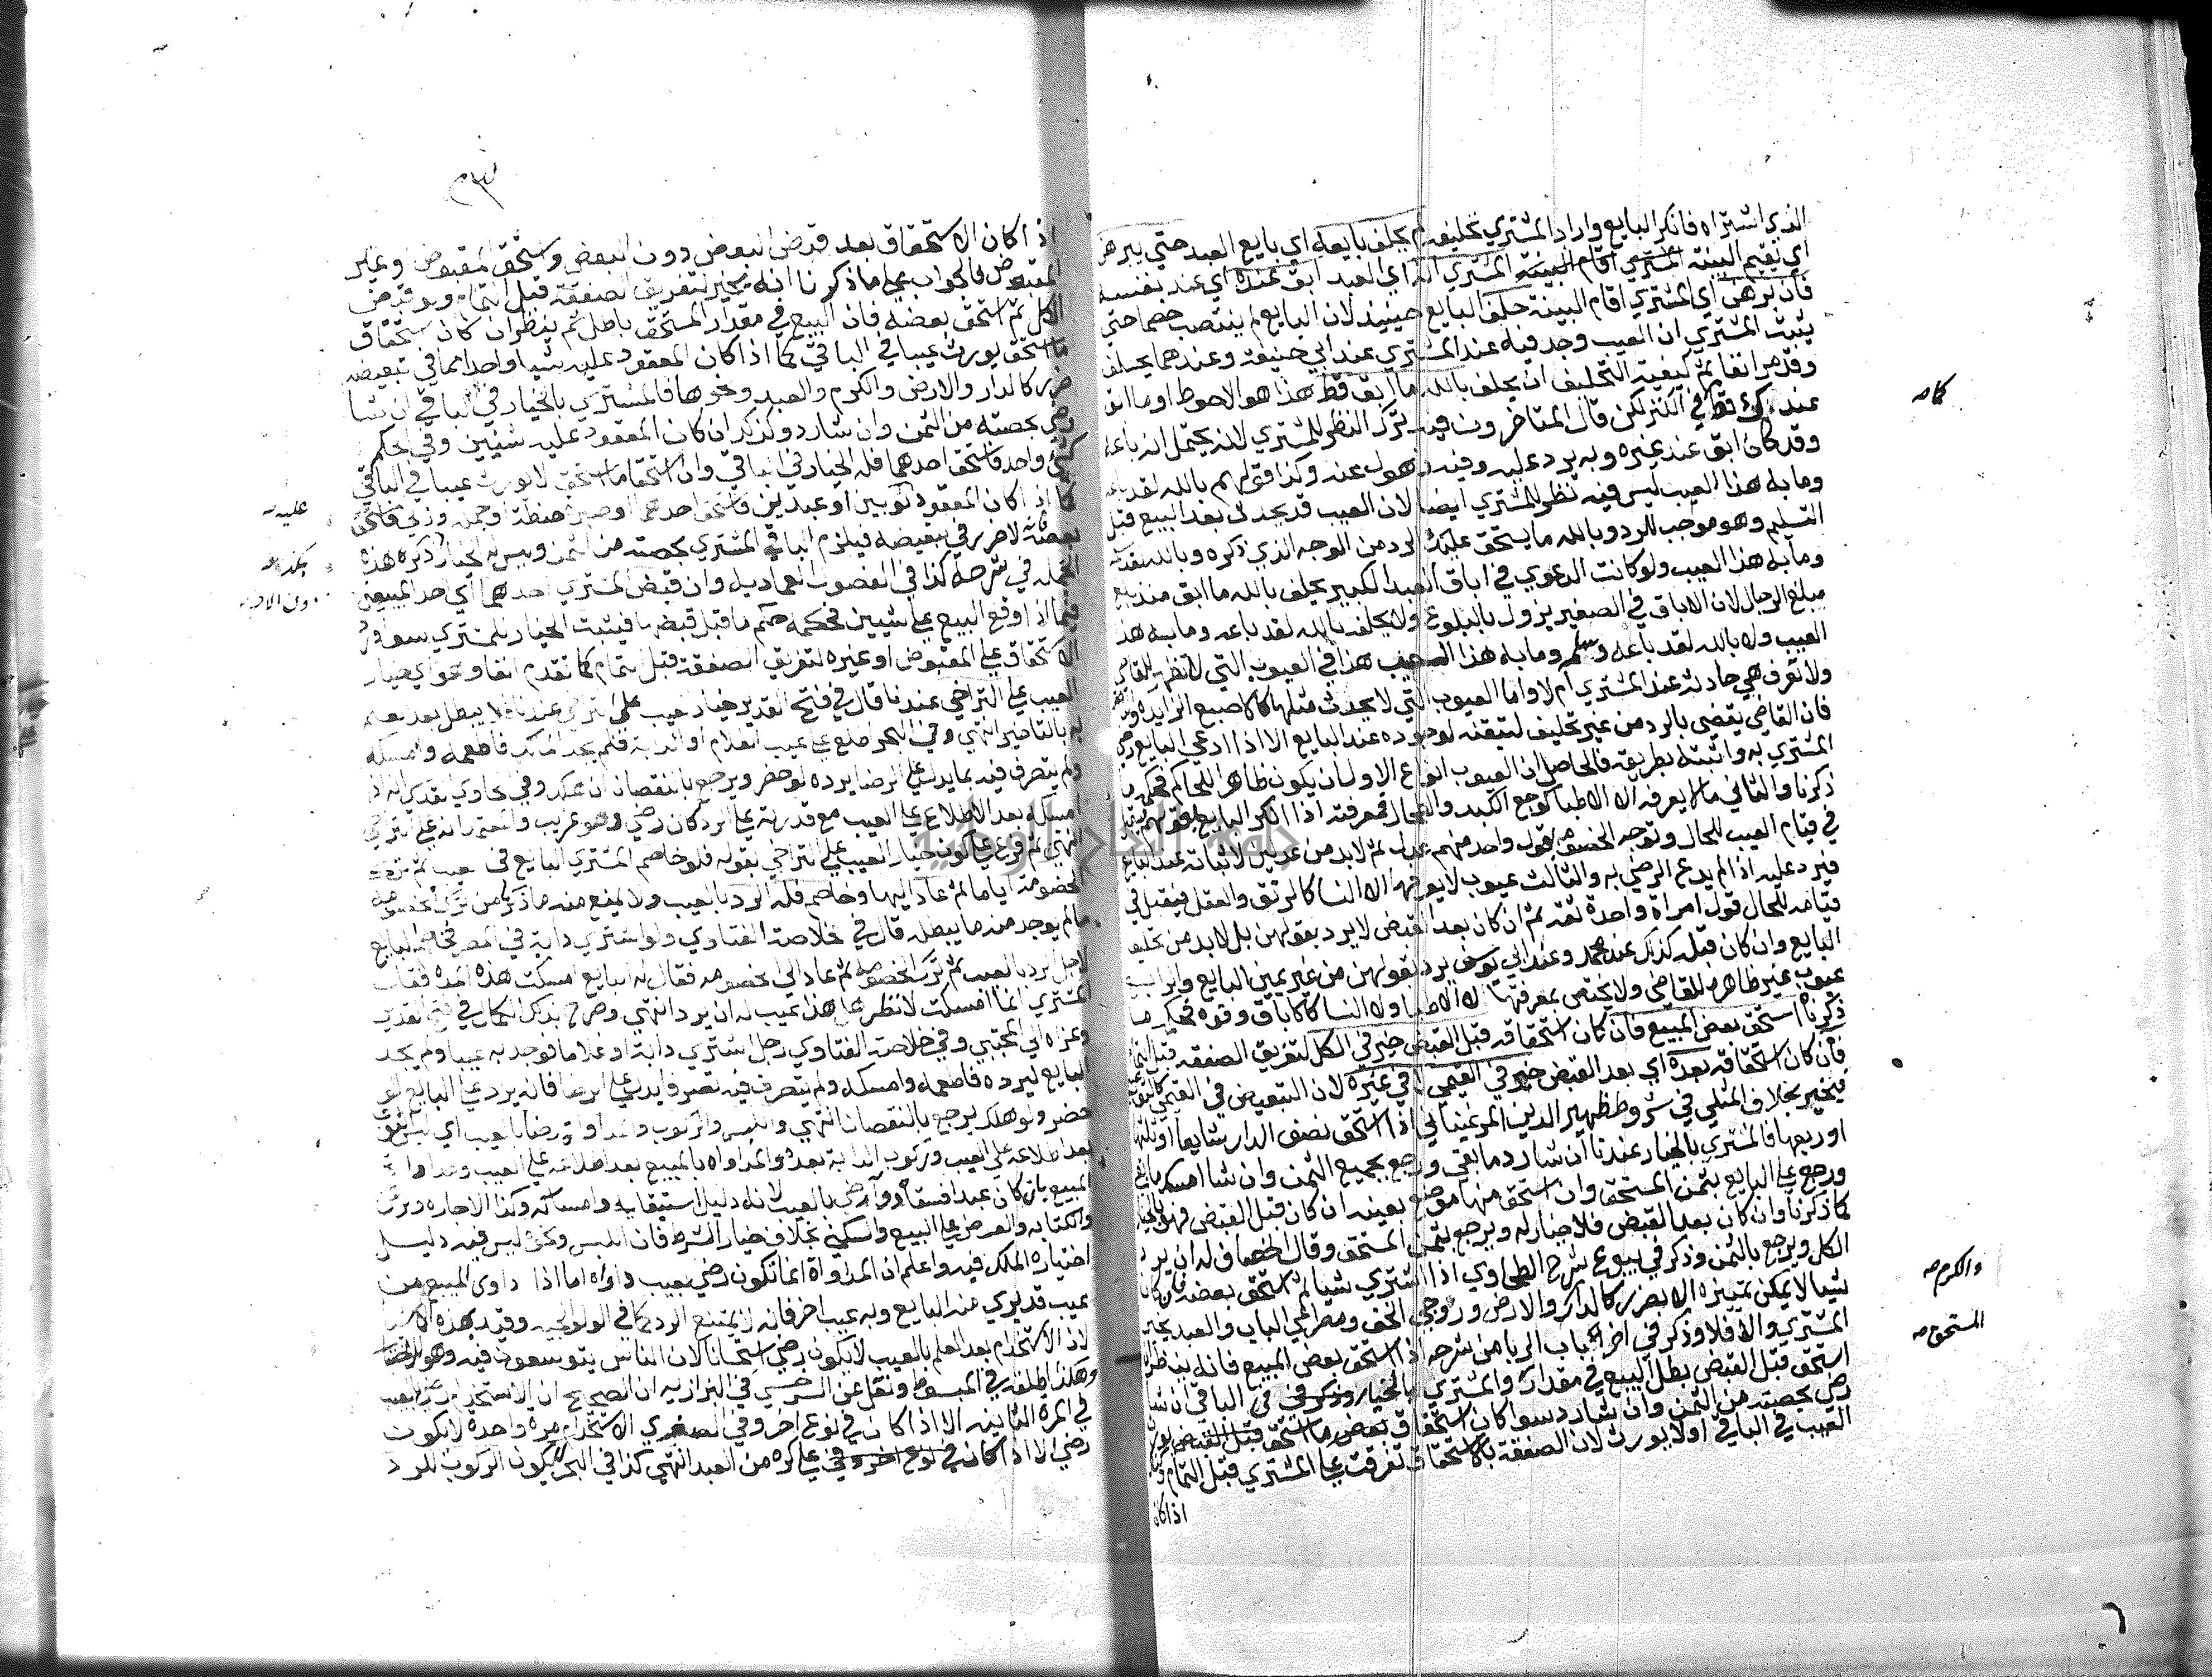 الذي اشتراه فانكر البايع واراد المشتري تحليفه لم يحلف بايعه اي بايع العبد حتي يبرهن
اي يقيم البينة المشتري اقام البينة المشتري انه اي العبد ابق عنده اي عند نفسه
فان برهن اي المشتري اقام البينة حلف البايع حينيذ لان البايع لم ينتصب خصما حتي
يثبت المشتري ان العيب وجد فيه عند المشتري عند ابي حنيفة وعندهما يحلف
وقد مر انفا ثم كيفية التحليف ان يحلف بالله ما ابق قط هذا هو الاحوط او ما ابق
عندك قط في الكنز لكن قال المتاخرون فيه ترك النظر للمشتري لانه يحتمل انه باعه
وقد كان ابق عند غيره وبه يرد عليه وفيه ذهول عنه وكذا قولهم بالله لقد باعه
وما به هذا العيب ليس فيه نظر للمشتري ايضا لان العيب قد يحدث بعد البيع قبل
التسليم وهو موجب للرد وبالله ما يستحق عليك الرد من الوجه الذي ذكره وبالله لقد
وما به هذا العيب ولو كانت الدعوي في اباق العبد الكبير يحلف بالله ما ابق منذ بلغ
مبلغ الرجال لان الاباق في الصغير يزول بالبلوغ ولا يحلف بالله لقد باعه وما به هذا
العيب ولا بالله لقد باعه وسلم وما به هذا العيب هذا في العيوب التي لا تظهر للقاضي
ولا تعرف هي حادثة عند المشتري ام لا واما العيوب التي لا يحدث مثلها كالاصبع الزايده
فان القاضي يقضي بالرد من غير تحليف لتيقنه لوجوده عند البايع الا اذا ادعي البايع رضي
المشتري به واثبته بطريقه فالحاصل ان العيوب انواع الاول ان يكون ظاهرا للحاكم فحكمه ما
ذكرنا والثاني ما لا يعرفه الا الاطبا كوجع الكبد والطحال فمعرفته اذا انكر البايع بقولهم
في قيام العيب للحال وتوجه الخصومة بقول واحد منهم عدل ثم لابد من عدلين لاثباته عند البايع
فيرد عليه اذا لم يدع الرضي به والثالث عيوب لا يعرفها الا النسا كالرتق والعقل فيقبل في
قيامه للحال قول امراة واحدة ثقة ثم ان كان بعد القبض لا يرد بقولهن بل لابد من تحليف
البايع وان كان قبله كذلك عند محمد وعند ابي يوسف يرد بقولهن من غير يمين البايع والرابع
عيوب غير ظاهرة للقاضي ولا يختص بمعرفتها الا الاطبا ولا النسا كالاباق ونحوه فحكمه ما
ذكرناه استحق بعض المبيع فان كان استحقاقه قبل القبض خير في الكل لتفريق الصفقة قبل التمام
فان كان استحقاقه بعده اي بعد القبض خير في القيمي لا في غيره لان التبعيض في القيمي
فيخير بخلاف المثلي في شروط ظهير الدين المرغيناني اذا استحق نصف الدار شايعا او ثلثها
او ربعها فالمشتري بالخيار عندنا ان شا رد ما بقي ورجع بجميع الثمن وان شا امسك ما بقي
ورجع علي البايع بثمن المستحق وان استحق منها موضع بعينه ان كان قبل القبض فهو بالخيار
كما ذكرنا وان كان بعد القبض فلا خيار له ويرجع بثمن المستحق وقال الخصاف له ان يرد
الكل ويرجع بالثمن وذكر في بيوع شرح الطحاوي اذا اشتري شيا ثم استحق بعضه فان كان
شيا لا يمكن تمييزه الا بضرر كالدار والارض وزوجي الخف ومصراعي الباب والعبد يخير
المشتري والا فلا وذكر في اخر كتاب الربا من شرحه اذا استحق بعض المبيع فانه ينظر ان
استحق قبل القبض بطل البيع في مقداره والمشتري بالخيار وذكر في في الباقي ان شا
رضي بحصته من الثمن وان شا رد سوا كان استحقاق بعض ما استحق قبل القبض يورث
العيب في الباقي او لا يورث لان الصفقة بالاستحقاق تفرقت علي المشتري قبل التمام
اذا كان
كما صح
والكرم صح
المستحق صح
اذا كان الاستحقاق بعد قبض البعض دون البعض واستحق المقبوض او غير
المقبوض فالجواب علي ما ذكرنا انه يخير لتفريق الصفقة قبل التمام ولو قبض
الكل ثم استحق بعضه فان البيع في مقدار المستحق باطل ثم ينظر ان كان استحقاق
ما استحق يورث عيبا في الباقي كما اذا كان المعقود عليه شيا واحدا مما في تبعيضه
ضرر كالدار والارض والكرم والعبد ونحوها فالمشتري بالخيار في الباقي ان شا
رضي بحصته من الثمن وان شا رد وكذلك ان كان المعقود عليه شيئين وفي الحكم
كشي واحد فاستحق احدهما فله الخيار في الباقي وان استحقاق ما استحق لا يورث عيبا في الباقي
كما اذا كان المعقود ثوبين او عبدين فاستحق احدهما او صبرة حنطة او جملة وزني فاستحق
بعضه لا ضرر في تبعيضه فيلزم الباقي المشتري بحصته من الثمن وليس له الخيار ذكره هذه
الجملة في شرحه كذا في الفصول العمادية وان قبض المشتري احدهما اي احد المبيعين
فيما اذا وقع البيع علي شيين فحكمه حكم ما قبل قبضهما فيثبت الخيار للمشتري سوا ورد
الاستحقاق علي المقبوض او غيره لتفريق الصفقة قبل التمام كما تقدم انفا وهو اي خيار
العيب علي التراخي عندنا قال في فتح القدير خيار العيب علي التراخي عندنا لا يبطل بعد العلم
به بالتاخير انتهي وفي البحر اطلع علي عيب الغلام او الدابة فلم يجد المالك فاطعمه وامسكه
ولم يتصرف فيه بما يدل علي الرضا يرده لو حضر ويرجع بالنقصان ان هلك وفي حاوي القدسي انه اذا
امسكه بعد الاطلاع علي العيب مع قدرته علي الرد كان رضي وهو غريب والمعتمد انه علي التراخي
انتهي ثم فرع علي كون خيار العيب علي التراخي بقوله فلو خاصم المشتري البايع في عيب ثم ترك
الخصومة اياما ثم عاد اليها وخاصم فله الرد بالعيب ولا يمنع منه ما ذكر من ترك الخصومة
ما لم يوجد منه ما يبطله قال في خلاصة الفتاوي ولو اشتري دابة في المصر فخاصم البايع
لاجل الرد بالعيب ثم ترك الخصومة ثم عاد الي الخصومة فقال له البايع امسكت هذه المدة فقال
المشتري انما امسكت لانظر هل هذا عيب له ان يرد انتهي وصرح بذلك الكمال في فتح القدير
وعزاه الي المجتبي وفي خلاصة الفتاوي رجل اشتري دابة او غلاما فوجد به عيبا ولم يجد
البايع ليرده فاطعمه وامسكه ولم يتصرف فيه تصرفا يدل علي الرضا فانه يرد علي البايع لو
حضر ولو هلك يرجع بالنقصان انتهي واللبس والركوب والمداواة رضا بالعيب اي
بعد اطلاعه علي العيب وركوب الدابة بعده والمداواة بالمبيع بعد اطلاعه علي العيب
المبيع بان كان عبدا فسقاه دواء رضي بالعيب لانه دليل استبقايه وامساكه وكذا الاجارة والرهن
والكتابة والعرض علي البيع والسكني بخلاف خيار الشرط فان اللبس ونحوه ليس فيه دليل
اختياره الملك فيه واعلم ان المداواة انما تكون رضي بعيب داواه اما اذا داوي المبيع من
عيب قد بري منه البايع وبه عيب اخر فانه لا يمتنع الرد كما في الولوالجية وقيد بهذه
لان الاستخدام بعد العلم بالعيب لا يكون رضي استحسانا لان الناس يتوسعون فيه وهو
وهكذا اطلقه في المبسوط ونقل عن السرخسي في البزازية ان الصحيح ان الاستخدام رضي بالعيب
في المرة الثانية الا اذا كان في نوع اخر وفي الصغري الاستخدام مرة واحدة لا يكون
رضي الا اذا كان في نوع اخر وفي علي كره من العبد انتهي كذا في البحر لا يكون الركوب للرد
عليه صح